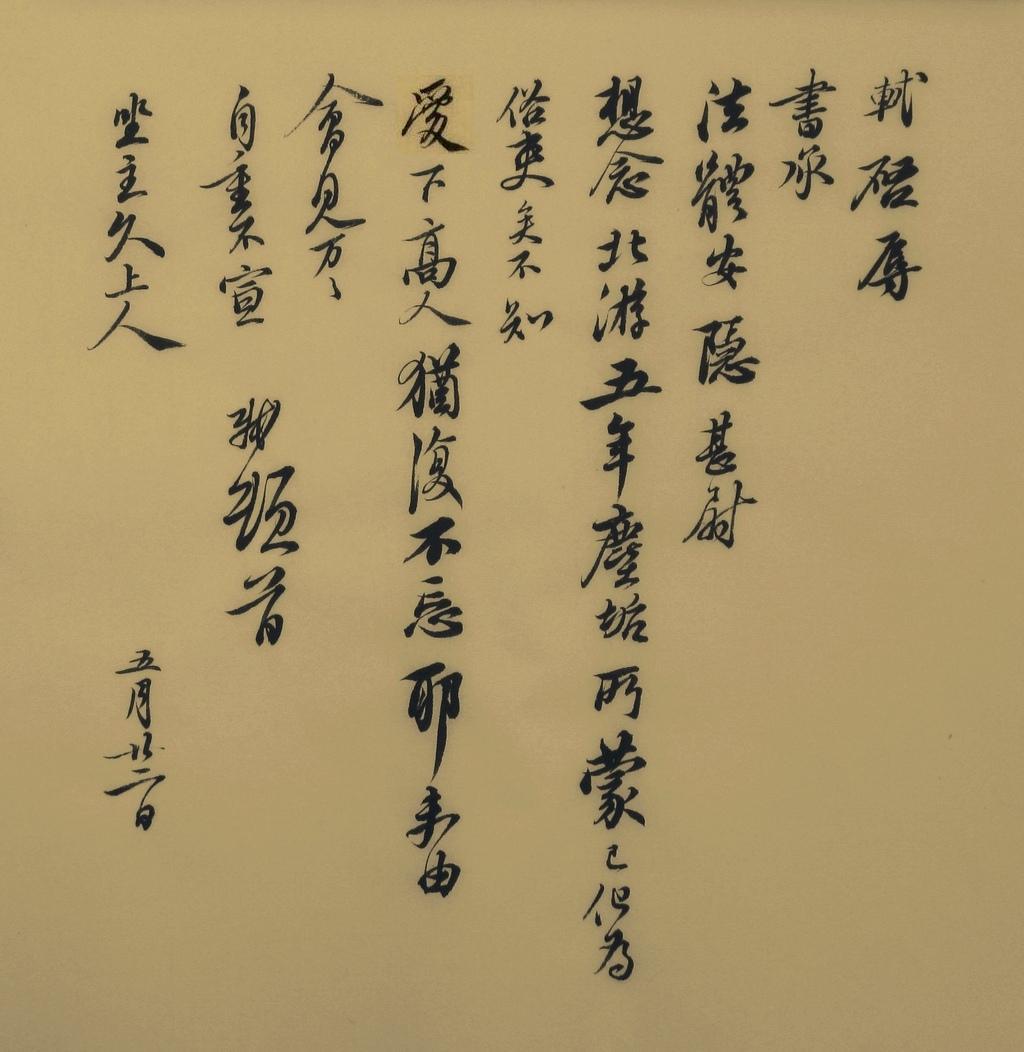 軾啓辱
書承
法體安隱甚慰
想念北游五年塵垢所蒙已化為
俗吏矣不知
愛下高人猶復不忘耶未由
會見万〻
自重不宣 軾頓首
坐主久上人 五月廿二日